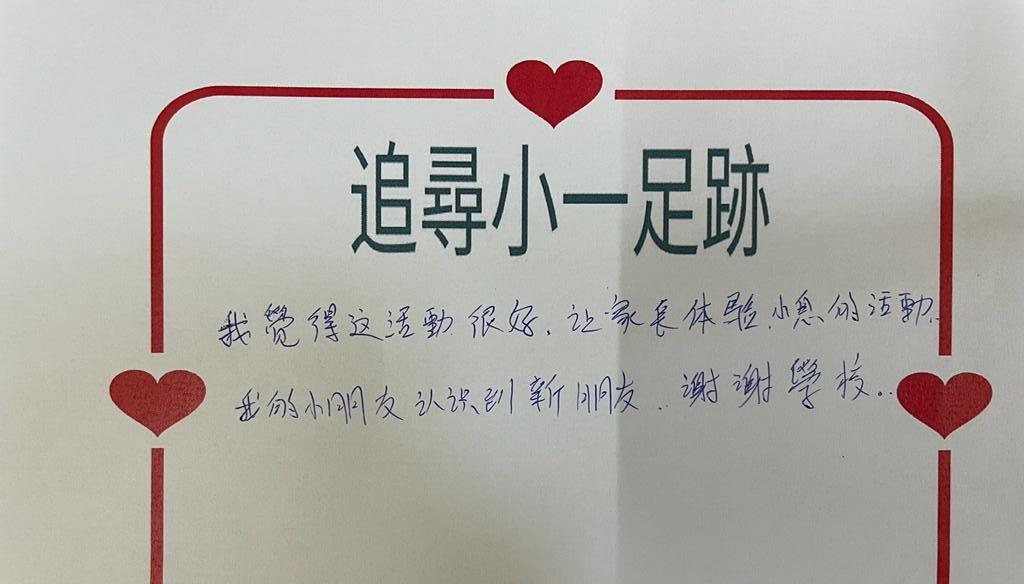 追尋小一足跡
我覺得这活動很好, 让家長体驗小息的活動.
我的小朋友认识到新朋友. 谢謝學校..